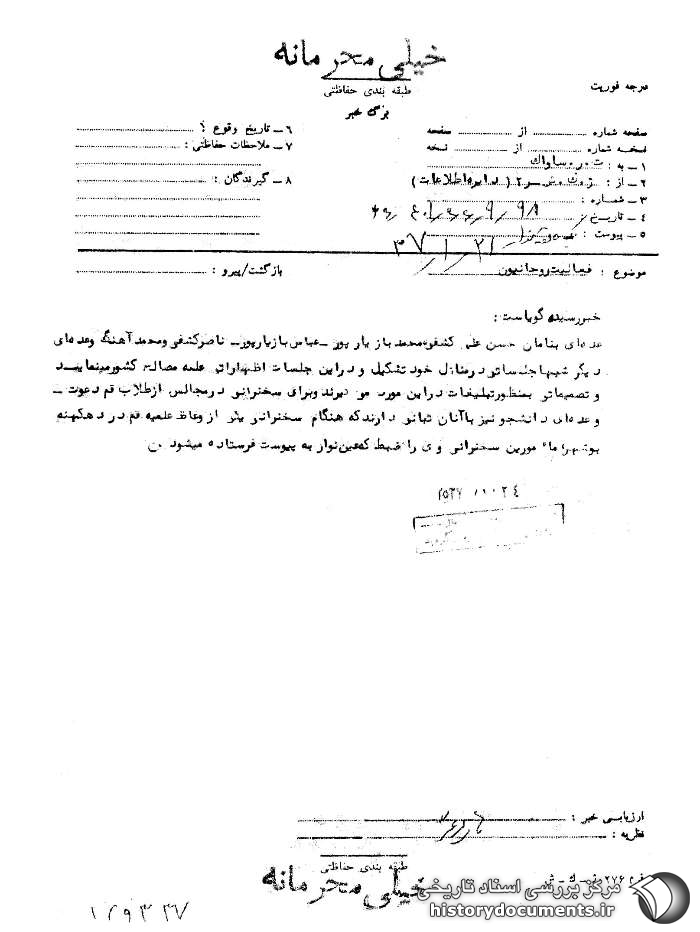 خیلی محرمانه
طبقه بندی حفاظتی
درجه فوریت
برگ خبر
صفحه شماره از صفحه
نسخه شماره از نسخه
۱ـ به : ساواك
۲ـ از : (دایره اطلاعات)
۳ـ شماره :
۴ـ تاریخ :
۵ـ پیوست :
۶ـ تاریخ وقوع :
۷ـ ملاحظات حفاظتی :
۸ـ گیرندگان :
موضوع : فعالیت روحانیون
بازگشت/پیرو :
خبررسیده گویاست :
عده‌ای بنامان حسن علی کشفی محمد بازیار پور ـ عباس بازیارپور ـ ناصرکشفی ومحمد آهنگ وعده‌ای
دیگر شبها جلساتی درمنازل خود تشکیل و در این جلسات اظهاراتی علیه مصالح کشورمینمایند
و تصمیماتی بمنظور تبلیغات در این مورد می گیرند وبرای سخنرانی درمجالس ازطلاب قم دعوت ـ
و عده‌ای دانشجو نیز باآنان تبانی دارند که هنگام سخنرانی یکی از وعاظ علمیه قم در دهکهنه
بوشهر مامورین سخنرانی وی را ضبط که عین نوار به پیوست فرستاده میشود
۲۵۳۷
ارزیابی خبر :
نظریه :
طبقه بندی حفاظتی
خیلی محرمانه
مرکز بررسی اسناد تاریخی
historydocuments.ir